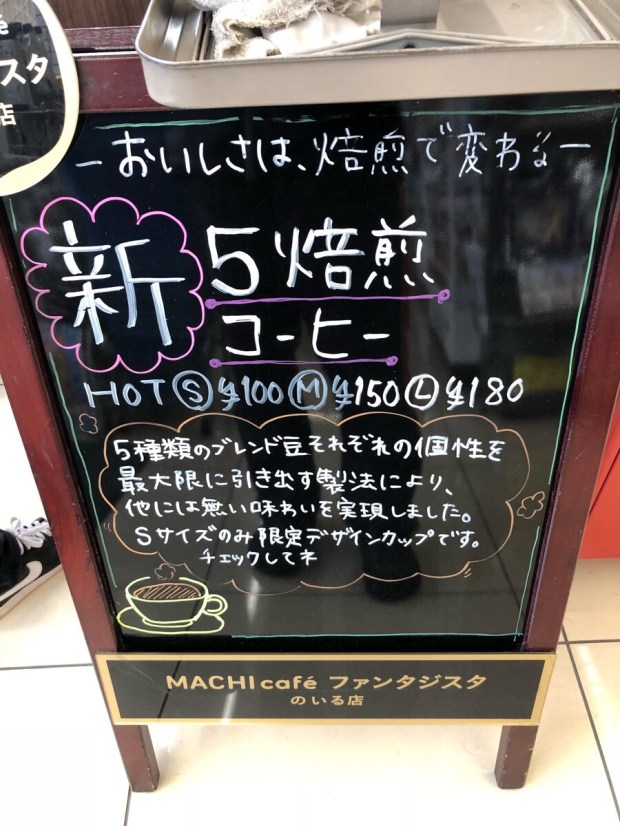 é
スタ
店
－おいしさは、焙煎で変わる－
新
5焙煎
コーヒー
HOT Ⓢ¥100 Ⓜ¥150 Ⓛ¥180
5種類のブレンド豆それぞれの個性を
最大限に引き出す製法により、
他には無い味わいを実現しました。
Sサイズのみ限定デザインカップです。
チェックしてネ
MACHI café ファンタジスタ
のいる店